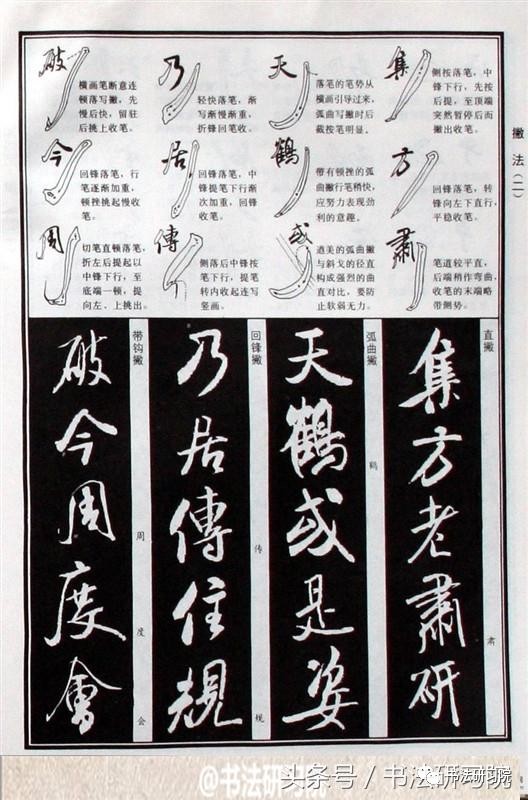 撇法(二)
集
侧按落笔，中
锋下行，先按
后提，至顶端
突然暂停后而
撇出收笔。
天
落笔的笔势从
横画引导过来，
弧曲写撇时后
截按笔明显。
乃
轻快落笔，渐
写渐慢渐重，
折锋回笔收。
破
横画笔断意连
顿落写撇，先
慢后快，留驻
后挑上收笔。
方
回锋落笔，转
锋向左下直行，
平稳收笔。
鹤
带有顿挫的弧
曲撇行笔稍快，
应努力表现劲
利的意趣。
居
回锋落笔，中
锋提笔下行渐
次加重，回锋
收笔。
今
回锋落笔，行
笔逐渐加重，
顿挫挑起慢收
笔。
肅
笔道较平直，
后端稍作弯曲，
收笔的末端略
带侧势。
或
遒美的弧曲撇
与斜戈的径直
构成强烈的曲
直对比，要防
止软弱无力。
傳
侧落后中锋按
笔下行，提笔
转内收起连写
竖画。
周
切笔直顿落笔，
折左后提起以
中锋下行，至
底端一顿，提
向左、上挑出。
直撇
肃
集方老肅研
弧曲撇
鹤
天鶴或是姿
回锋撇
传
规
乃居傳住規
带钩撇
周
度
会
破今周度會
@书法研习院
头条号 / 书法研习院
书法研习院